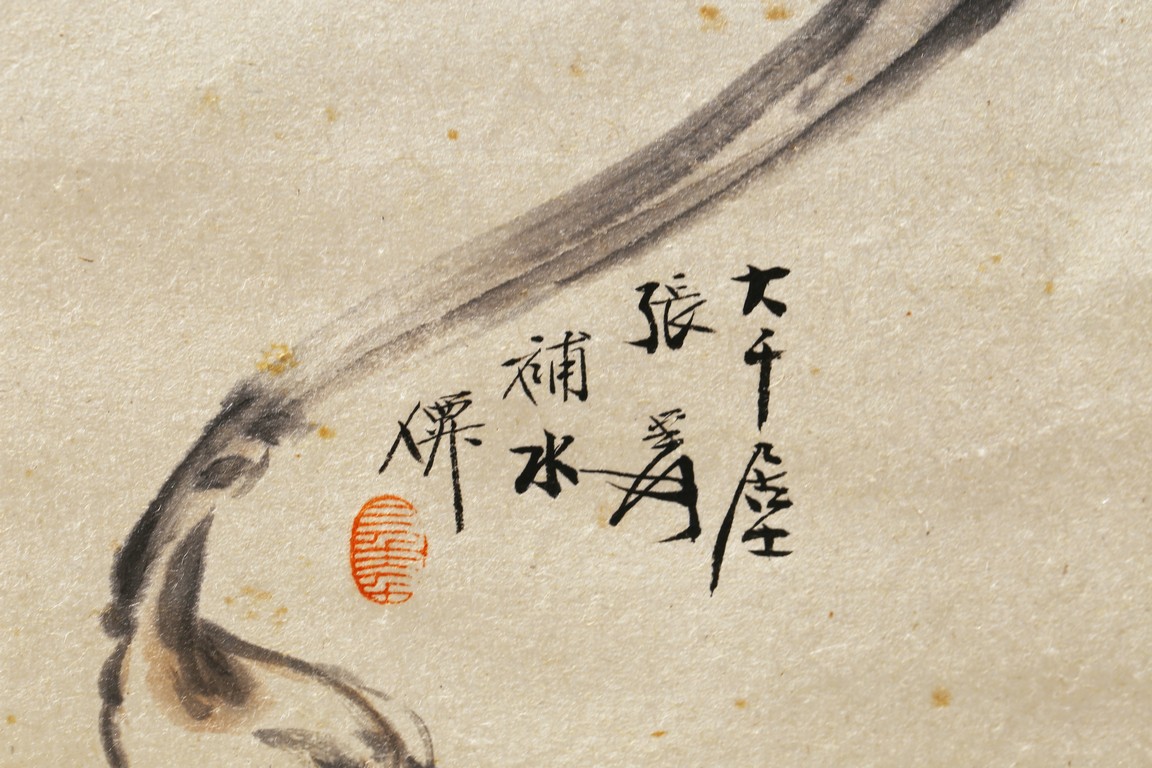 大千居士
張爰
補水
僊